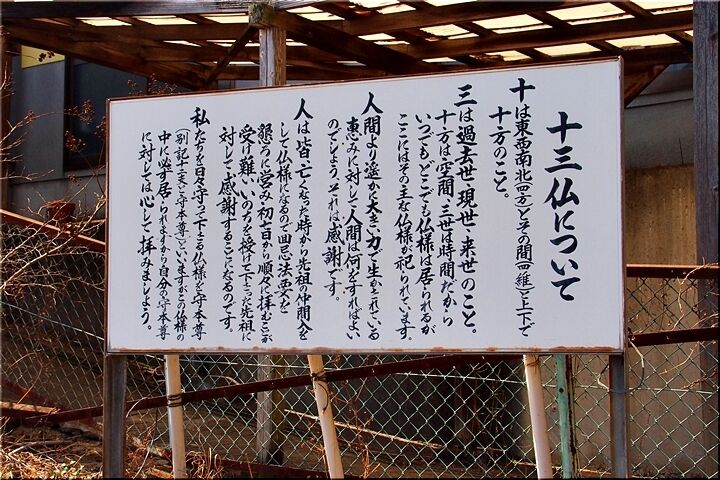 十三仏について
十は東西南北(四方)とその間(四維)と上下で
十方のこと。
三は過去世・現世・来世のこと。
十方は空間・三世は時間だから
いつでも、どこでも仏様は居られるが
ここにはその主な仏様が祀られています。
人間より遥かに大きい力で生かされている
恵みに対して人間は何をすればよい
のでしょう。それは感謝です。
人は皆、亡くなった時から先祖の仲間入を
して仏様になるので回忌法要を
懇ろに営み初七日から順々に拝むことが
受け難いいのちを授けて下さった先祖に
対して感謝することになるのです。
私たちを日々守って下さる仏様を守本尊
(別記十二支と守本尊)といいますがこの仏様の
中に必ず居られますから自分の守本尊
に対しては心して拝みましょう。